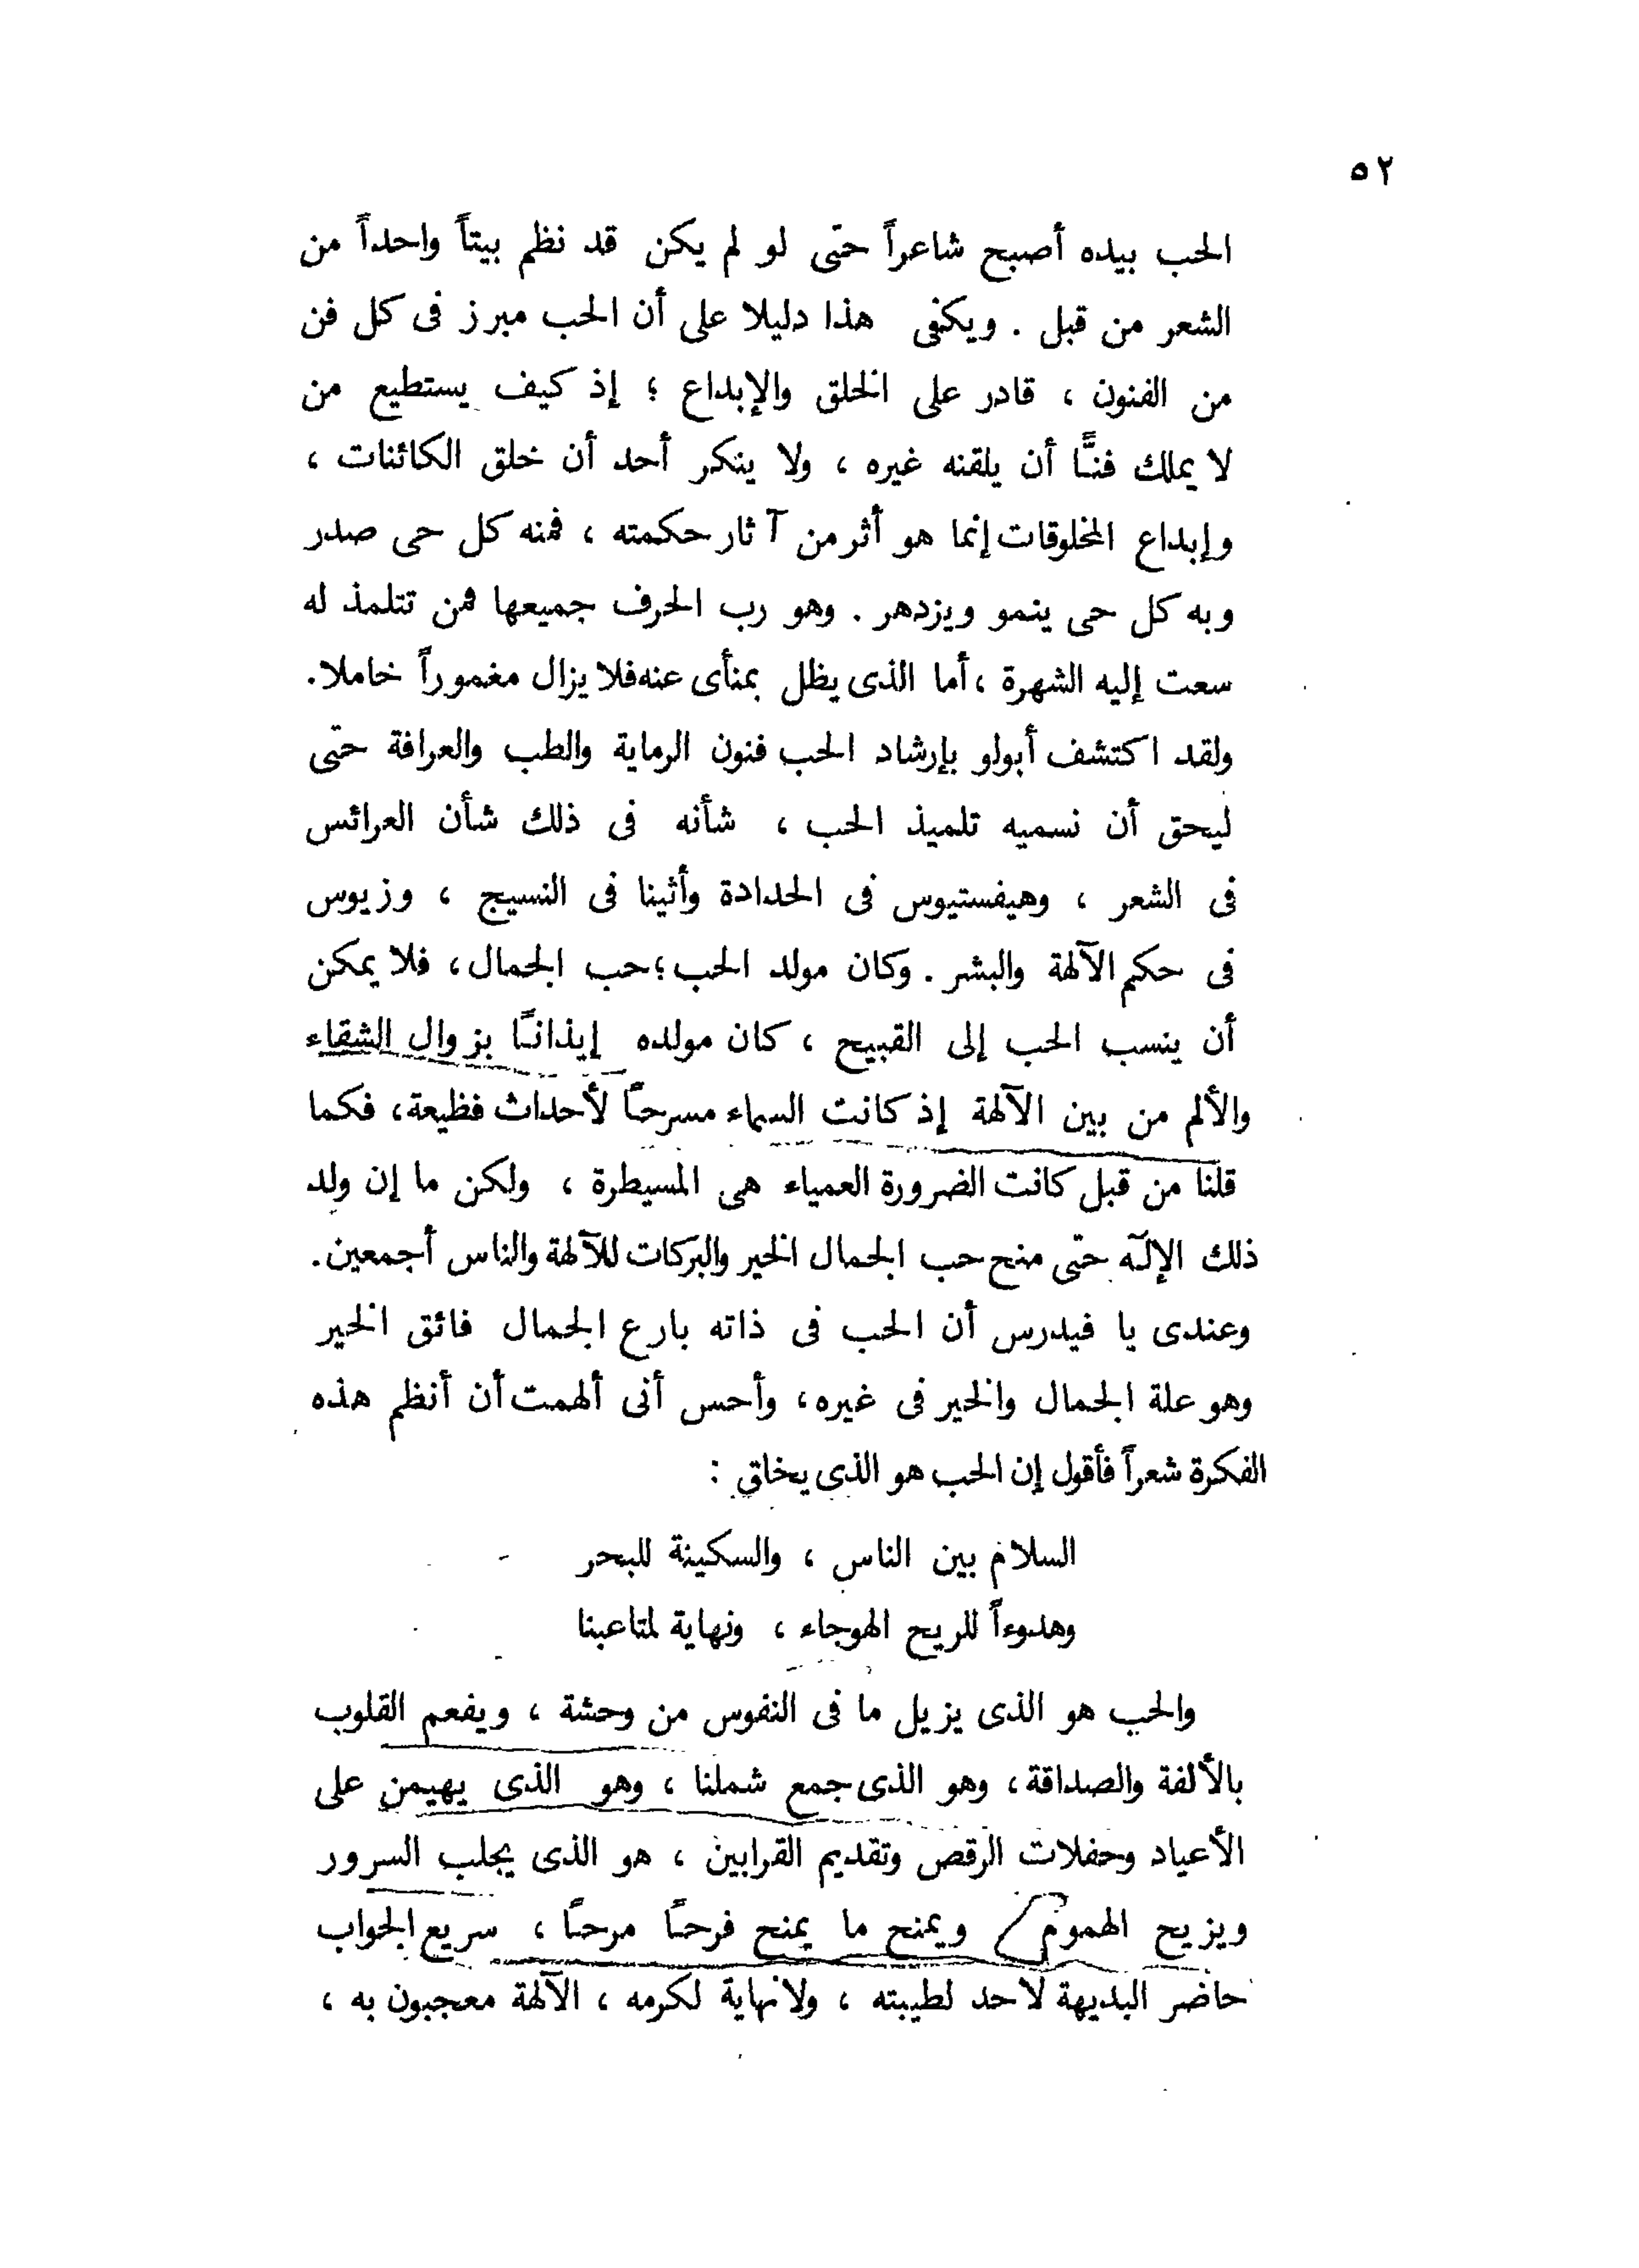 ٥٢
الحب بيده أصبح شاعراً حتى لو لم يكن قد نظم بيتاً واحداً من
الشعر من قبل . ويكفى هذا دليلا على أن الحب مبرز فى كل فن
من الفنون ، قادر على الخلق والإبداع ؛ إذ كيف يستطيع من
لا يملك فنًّا أن يلقنه غيره ، ولا ينكر أحد أن خلق الكائنات ،
وإبداع المخلوقات إنما هو أثر من آثار حكمته ، فمنه كل حى صدر
وبه كل حى ينمو ويزدهر . وهو رب الحرف جميعها فمن تتلمذ له
سعت إليه الشهرة ، أما الذى يظل بمنأى عنه فلا يزال مغموراً خاملا .
ولقد اكتشف أبولو بإرشاد الحب فنون الرماية والطب والعرافة حتى
ليحق أن نسميه تلميذ الحب ، شأنه فى ذلك شأن العرائس
فى الشعر ، وهيفستيوس فى الحدادة وأثينا فى النسيج ، وزيوس
فى حكم الآلهة والبشر . وكان مولد الحب ؛ حب الجمال ، فلا يمكن
أن ينسب الحب إلى القبيح ، كان مولده إيذانًا بزوال الشقاء
والألم من بين الآلهة إذ كانت السماء مسرحاً لأحداث فظيعة ، فكما
قلنا من قبل كانت الضرورة العمياء هى المسيطرة ، ولكن ما إن ولد
ذلك الإلّه حتى منح حب الجمال الخير والبركات للآلهة والناس أجمعين .
وعندى يا فيدرس أن الحب فى ذاته بارع الجمال فائق الخير
وهو علة الجمال والخير فى غيره ، وأحس أنى ألهمت أن أنظم هذه
الفكرة شعراً فأقول إن الحب هو الذى يخلق :
السلام بين الناس ، والسكينة للبحر
وهدوءاً للريح الهوجاء ، ونهاية لمتاعبنا
والحب هو الذى يزيل ما فى النفوس من وحشة ، ويفعم القلوب
بالألفة والصداقة ، وهو الذى جمع شملنا ، وهو الذى يهيمن على
الأعياد وحفلات الرقص وتقديم القرابين ، هو الذى يجلب السرور
ويزيح الهموم ويمنح ما يمنح فرحاً مرحاً ، سريع الجواب
حاضر البديهة لا حد لطيبته ، ولا نهاية لكرمه ، الآلهة معجبون به ،